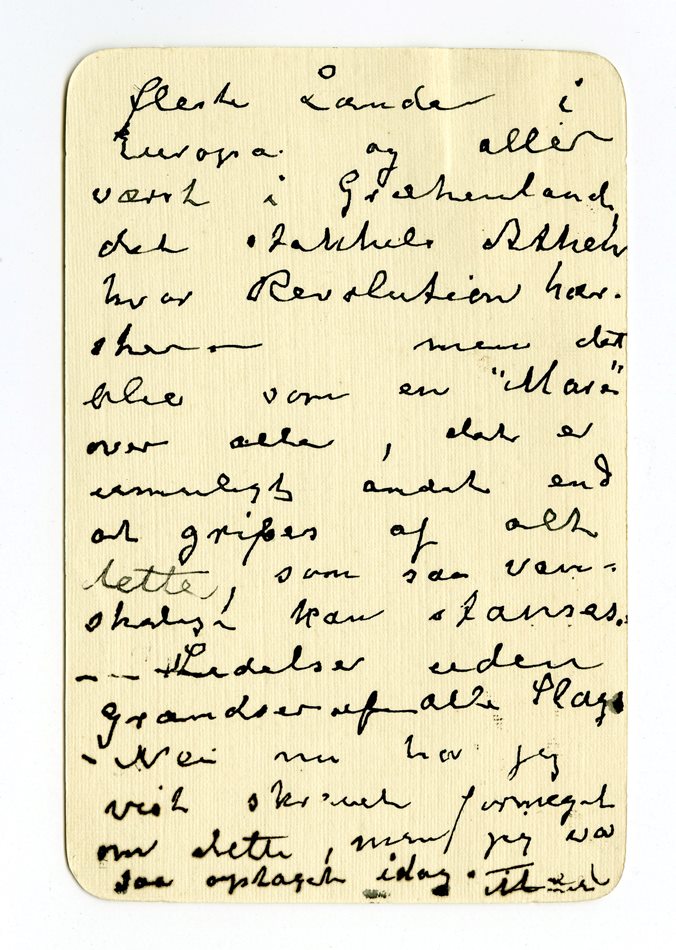 fleste Lande i
Europa og aller
værst i Grækenland,
det stakkels Athen
hvor Revolution her-
sker — men det
blev som en "Mare"
over alle, det er
umuligt andet end
at gribes af alt
dette, som saa van-
skeligt kan stanses.
— — Lidelser uden
Grændser af alle Slags
- Nei nu har jeg
vist skrevet formeget
om dette, men jeg var
saa optaget idag.